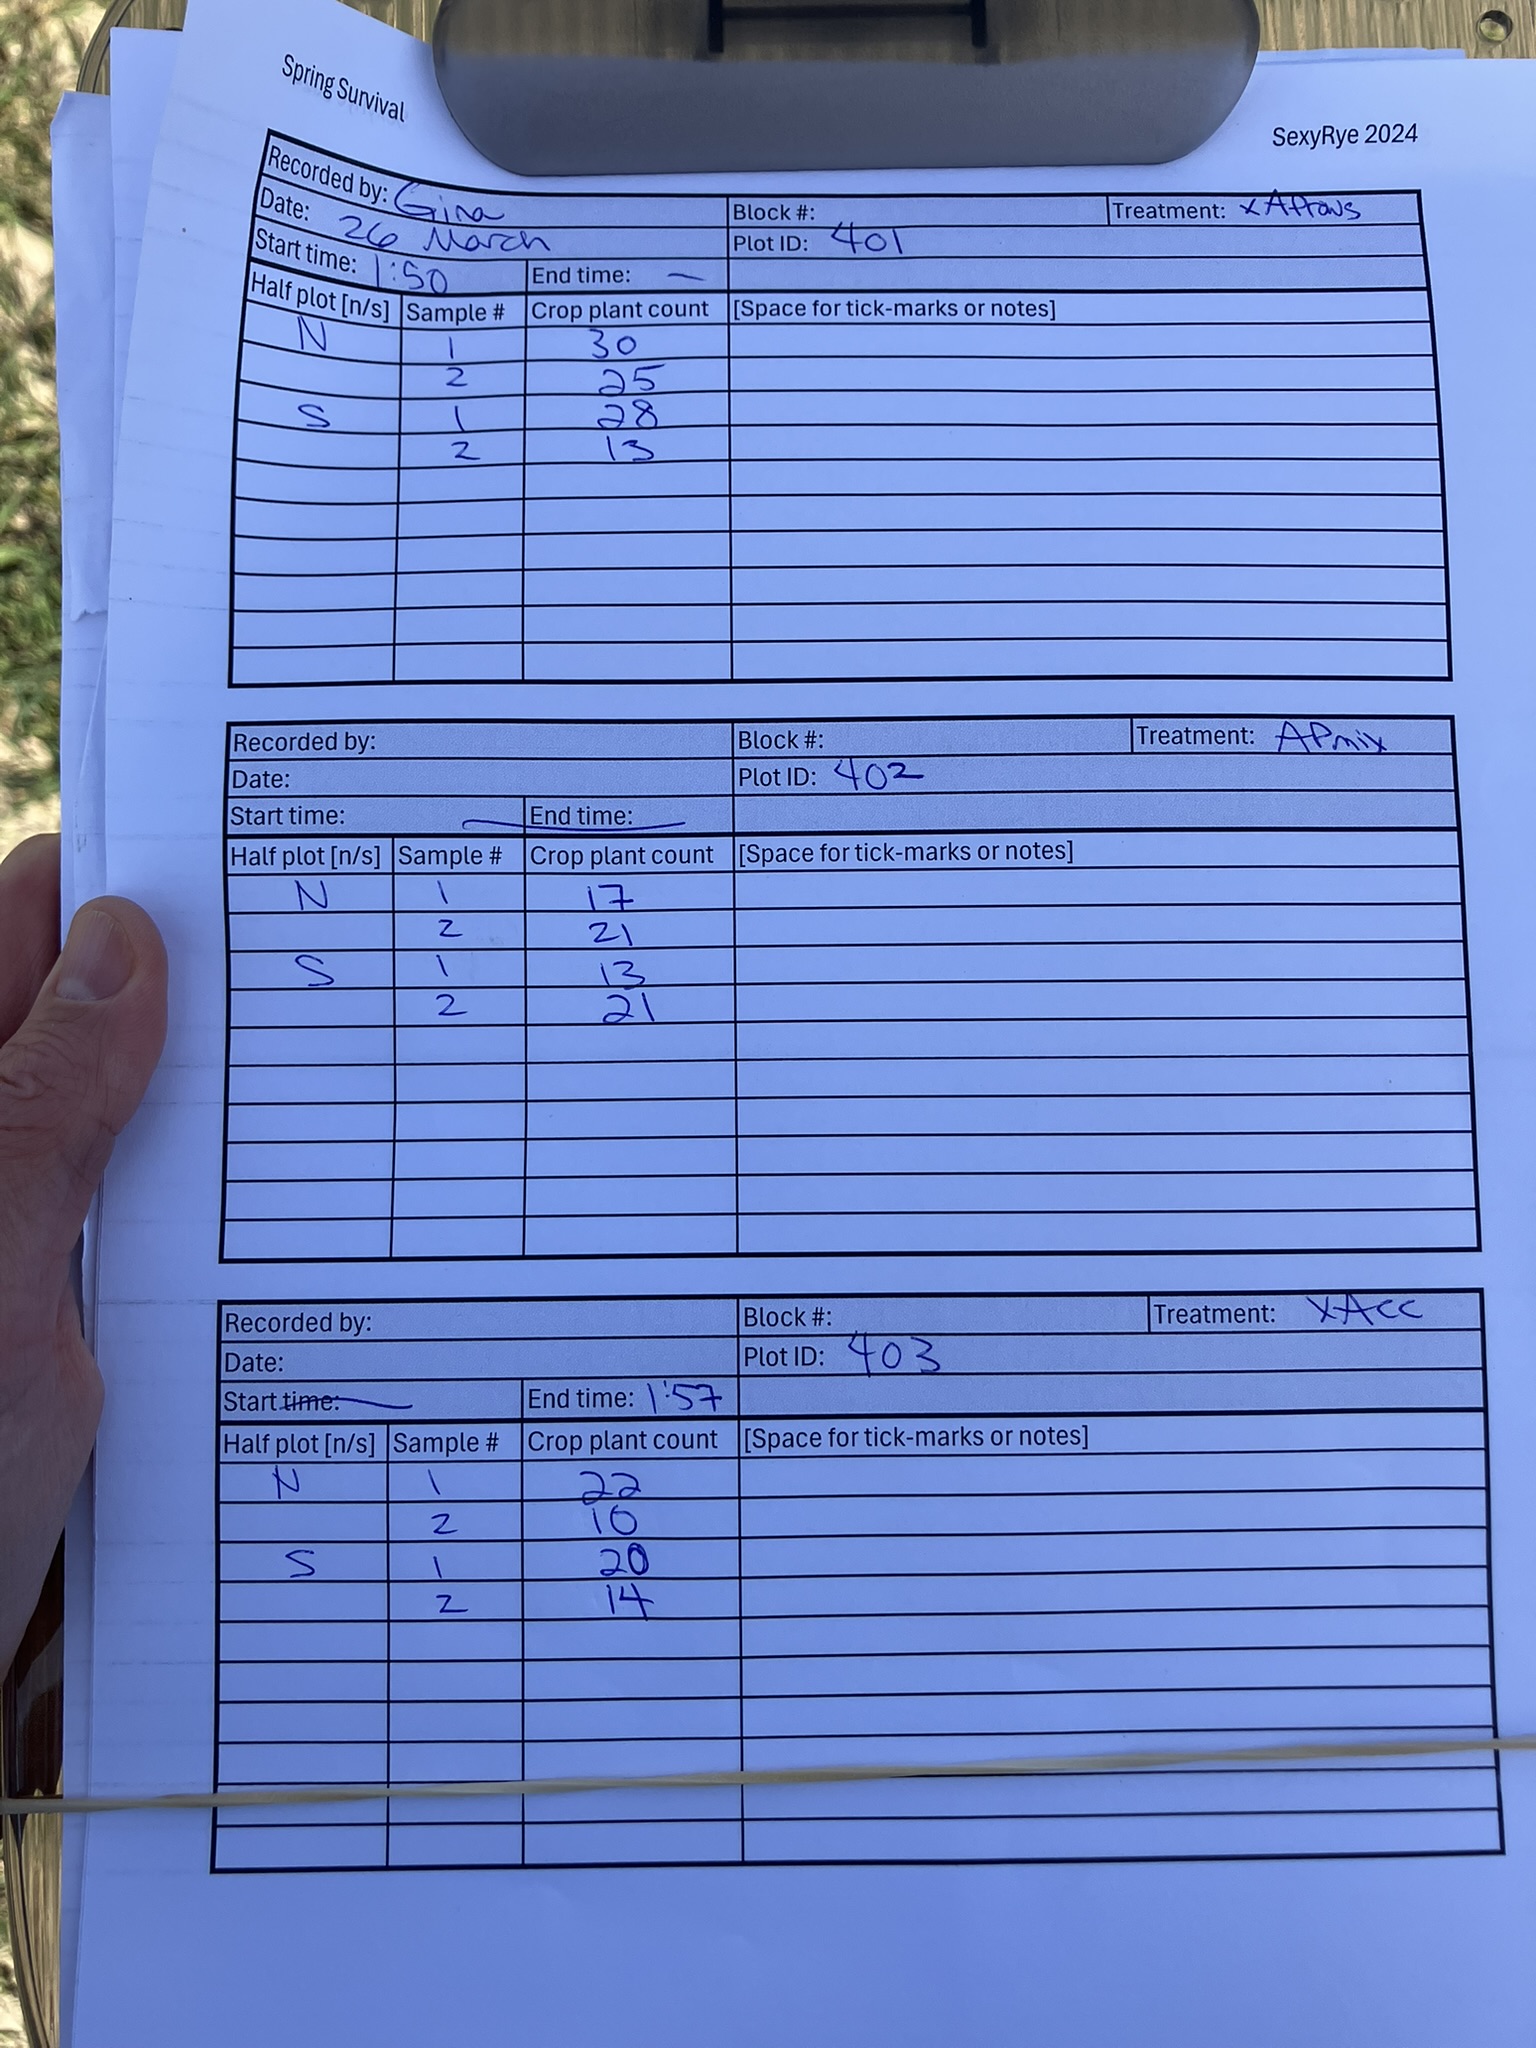 Spring Survival
SexyRye 2024
Recorded by: Gina Block #: Treatment:
Date: 26 March Plot ID: 401
Start time: 1:50 End time: —
Half plot [n/s] Sample # Crop plant count [Space for tick-marks or notes]
N 1 30
2 25
S 1 28
2 13
Recorded by: Block #: Treatment: APmix
Date: Plot ID: 402
Start time: End time:
Half plot [n/s] Sample # Crop plant count [Space for tick-marks or notes]
N 1 17
2 21
S 1 13
2 21
Recorded by: Block #: Treatment: XAcc
Date: Plot ID: 403
Start time: End time: 1:57
Half plot [n/s] Sample # Crop plant count [Space for tick-marks or notes]
N 1 22
2 10
S 1 20
2 14